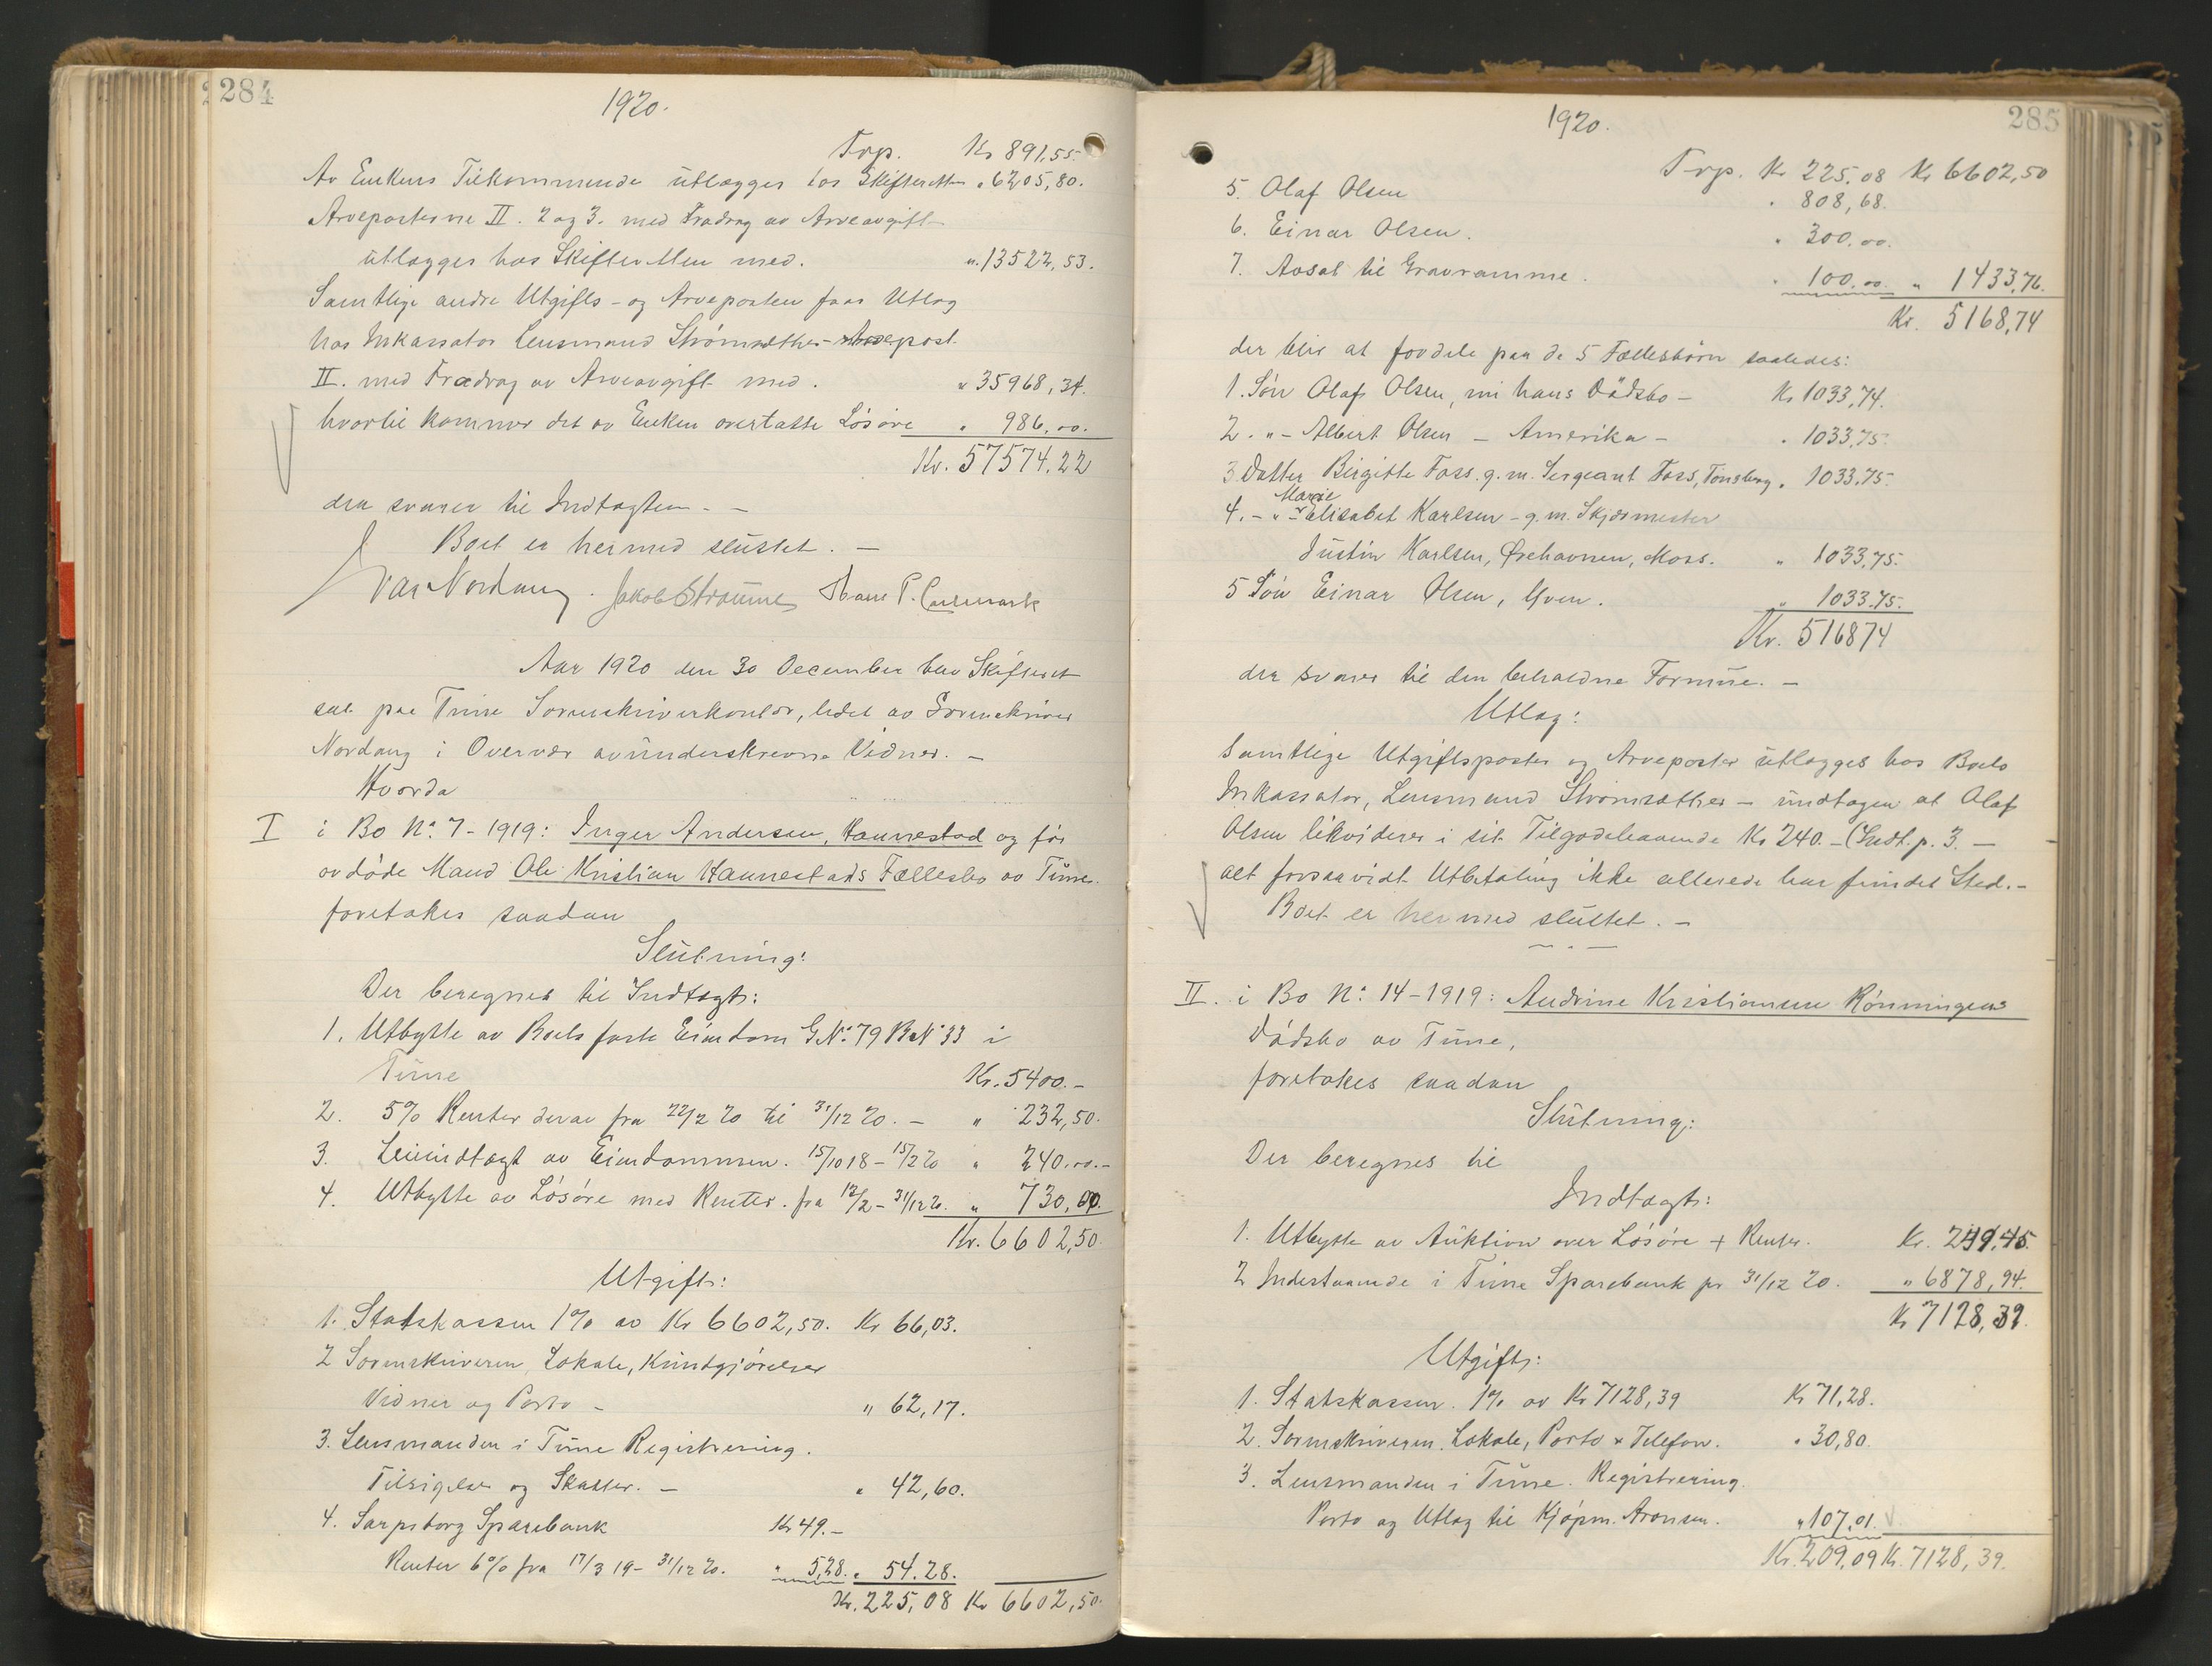 284
1920.
Trp. Kr 891,55.
Av Enkens Tilkommende utlægges hos Skifteretten " 6205,80.
Arveposterne II. 2 og 3. med Fradrag av Arveavgift
utlægges hos Skifteretten med. " 13522,53.
Samtlige andre Utgifts- og Arveposter faar Utlæg
hos Inkassator Lensmand Strømsæther - Arvepost
II. med Fradrag av Arveavgift med. " 35968,34.
hvortil kommer det av Enken overtatte Løsøre " 986,00.
Kr. 57574,22
der svarer til Indtægten. -
Boet er hermed sluttet. -
Nordang. Jakob Straume
Aar 1920 den 30 December blev Skifteret
sat paa Tune Sorenskriverkontor, ledet av Sorenskriver
Nordang i Overvær av underskrevne Vidner. -
Hvorda
I i Bo No. 7-1919: Inger Andersen, Hannestad og før
avdøde Mand Ole Kristian Hannestads Fællesbo av Tune.
foretakes saadan
Slutning:
Der beregnes til Indtægt:
1. Utbytte av Boets faste Eiendom G.No. 79 B.No 33 i
Tune Kr. 5400.-
2. 5% Renter derav fra 22/2 20 til 31/12 20. - " 232,50.
3. Leieindtægt av Eiendommen. 15/10 18 - 15/2 20 " 240.00.-
4. Utbytte av Løsøre med Renter. fra 12/2 - 31/12 20. " 730,00.
Kr. 6602,50.
Utgift:
1. Statskassen 1% av Kr 6602,50. Kr 66,03.
2 Sorenskriveren, Lokale, Kundgjørelser
Vidner og Porto - " 62,17.
3. Lensmanden i Tune Registrering.
Tilsigelse og Skatter. - " 42,60.
4. Sarpsborg Sparebank Kr 49.-
Renter 6% fra 17/3 19 - 31/12 20. " 5,28. " 54.28.
Kr. 225,08 Kr 6602,50.
285
1920.
Trp. Kr 225,08 Kr 6602,50
5. Olaf Olsen " 808,68.
6. Einar Olsen. " 300.00.
7. Avsat til Gravramme. " 100.00. " 1433,76.
Kr. 5168,74
der blir at fordele paa de 5 Fællesbørn saaledes:
1. Søn Olaf Olsen, nu hans Dødsbo - Kr 1033,74.
2. " - Albert Olsen - Amerika - " 1033,75.
3. Datter Birgitte Foss. g. m. Sergeant Foss, Tønsberg " 1033,75.
Marie
4. - " - Elisabet Karlsen - g. m. Skjærmester
Justin Karlsen, Ørehavnen, Moss. " 1033,75.
5 Søn Einar Olsen, Yven. " 1033.75.
Kr. 516874
der svarer til den beholdne Formue. -
Utlæg:
Samtlige Utgiftsposter og Arveposter utlægges hos Boets
Inkassator, Lensmand Strømsæther - undtagen at Olaf
Olsen likviderer i sit Tilgodehavende Kr 240.- (Indt. p. 3. -
alt forsaavidt Utbetaling ikke allerede har fundet Sted. -
Boet er hermed sluttet. -
II. i Bo No. 14-1919: Andrine Kristiansen Rønningens
Dødsbo av Tune,
foretakes saadan
Slutning:
Der beregnes til
Indtægt:
1. Utbytte av Auktion over Løsøre + Renter. Kr. 249,45.
2 Indestaaende i Tune Sparebank pr 31/12 20. " 6878,94.
Kr 7128,39.
Utgift:
1. Statskassen. 1% av Kr 7128,39 Kr 71,28.
2. Sorenskriveren. Lokale, Porto + Telefon. " 30,80.
3. Lensmanden i Tune. Registrering.
Porto og Utlæg til Kjøpm. Aronsen. " 107,01.
Kr. 209,09 Kr. 7128,39.